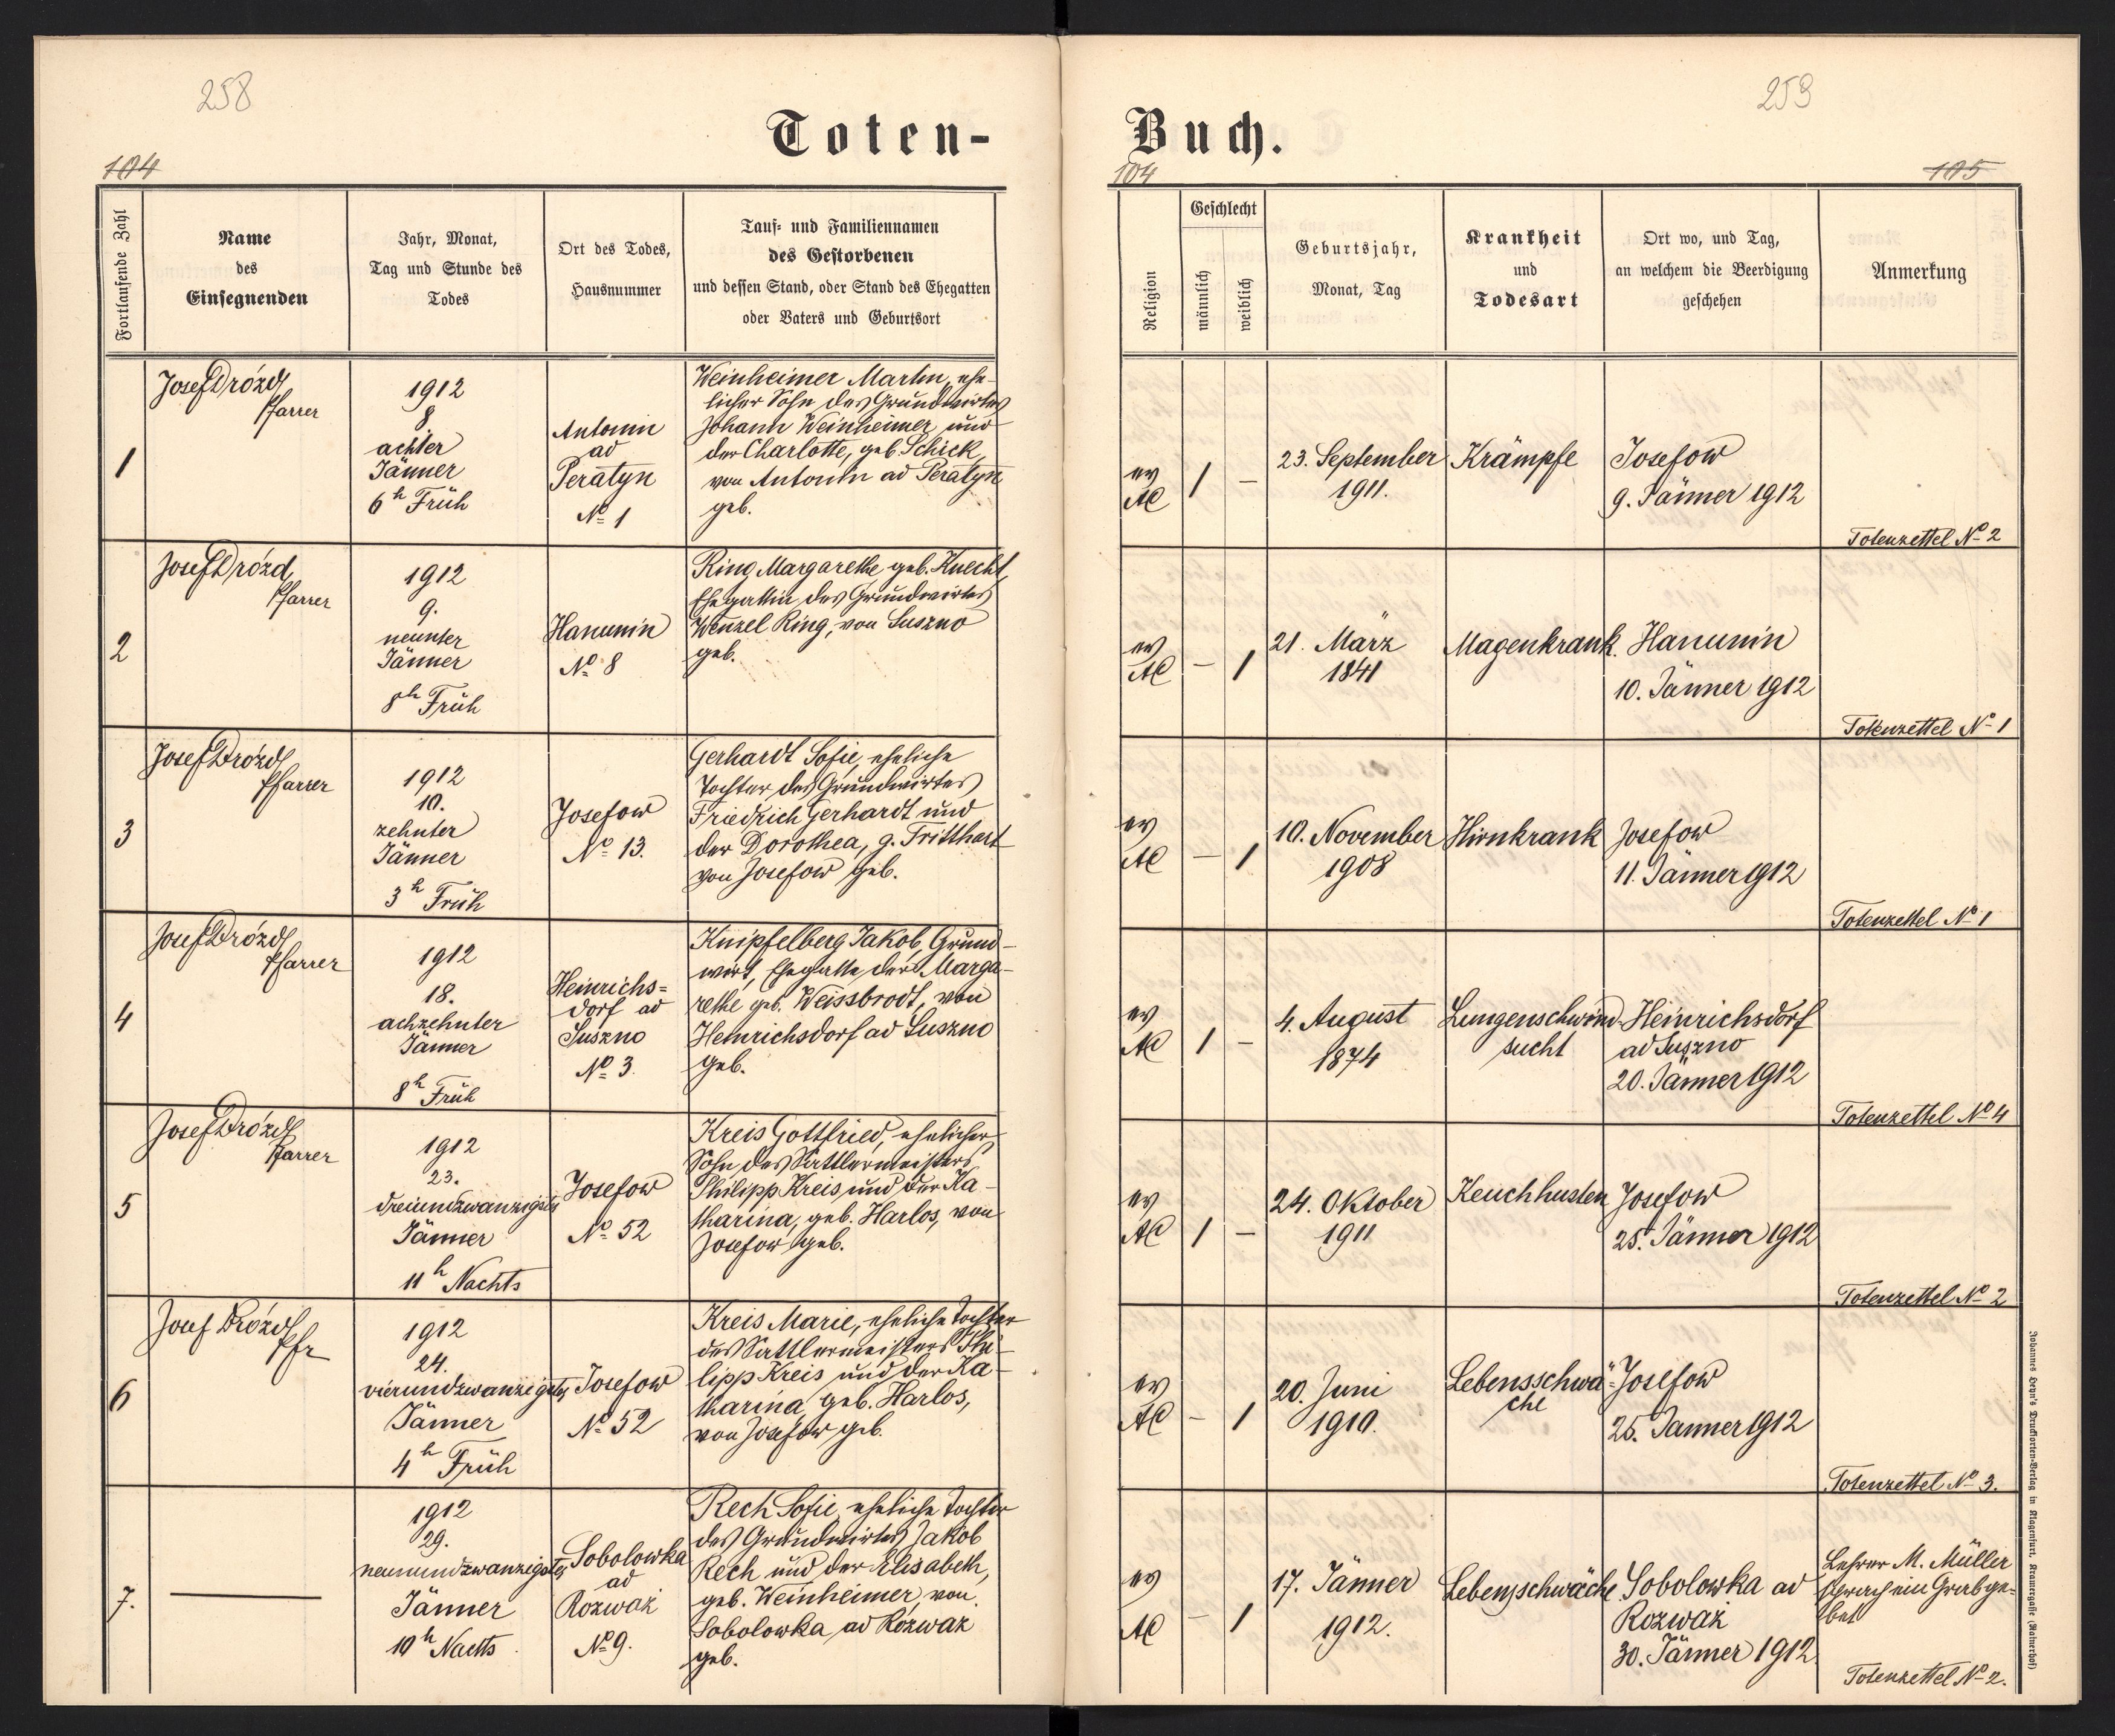 258
259
Toten-
Buch.
104
104
105
Fortlaufende Zahl
Name
des
Einsegnenden
Jahr, Monat,
Tag und Stunde des
Todes
Ort des Todes,
Hausnummer
Tauf- und Familiennamen
des Gestorbenen
und dessen Stand, oder Stand des Ehegatten
oder Vaters und Geburtsort
Religion
Geschlecht
männlich
weiblich
Geburtsjahr,
Monat, Tag
Krankheit
und
Todesart
Ort wo, und Tag,
an welchem die Beerdigung
geschehen
Anmerkung
1
Josef Drózd
Pfarrer
1912
8
achter
Jänner
6h Früh
Antonin
ad
Peratyn
No 1
Weinheimer Martin, ehe-
licher Sohn des Grundwirtes
Johann Weinheimer und
der Charlotte, geb. Schick,
von Antonin ad Peratyn
geb.
ev
AC
1
–
23. September
1911.
Krämpfe
Josefow
9. Jänner 1912
Totenzettel No 2
2
Josef Drózd
Pfarrer
1912
9.
neunter
Jänner
8h Früh
Hanunin
No 8
Ring Margarethe geb. Knecht,
Ehegattin des Grundwirtes
Wenzel Ring, von Suszno
geb.
ev
AC
–
1
21. März
1841
Magenkrank.
Hanunin
10. Jänner 1912
Totenzettel No 1
3
Josef Drózd
Pfarrer
1912
10.
zehnter
Jänner
3h Früh
Josefow
No 13.
Gerhardt Sofie, eheliche
Tochter des Grundwirtes
Friedrich Gerhardt und
der Dorothea, g. Tritthart
von Josefow geb.
ev
AC
–
1
10. November
1908
Hirnkrank
Josefow
11. Jänner 1912
Totenzettel No 1
4
Josef Drózd
Pfarrer
1912
18.
achzehnter
Jänner
8h Früh
Heinrichs=
dorf ad
Suszno
No 3.
Knipfelberg Jakob, Grund-
wirt, Ehegatte der Marga-
rethe geb. Weissbrodt, von
Heinrichsdorf ad Suszno
geb.
ev
AC
1
–
4. August
1874
Lungenschwind-
sucht
Heinrichsdorf
ad Suszno
20. Jänner 1912
Totenzettel No 4
5
Josef Drózd
Pfarrer
1912
23.
dreiundzwanzigster
Jänner
11h Nachts
Josefow
No 52
Kreis Gottfried, ehelicher
Sohn des Sattlermeisters
Philipp Kreis und der Ka-
tharina, geb. Harlos, von
Josefow geb.
ev
AC
1
–
24. Oktober
1911
Keuchhusten
Josefow
25. Jänner 1912
Totenzettel No 2
6
Josef Drózd
Pfr
1912
24.
vierundzwanzigster
Jänner
4h Früh
Josefow
No 52
Kreis Marie, eheliche Tochter
des Sattlermeisters Phi-
lipp Kreis und der Ka-
tharina, geb. Harlos,
von Josefow geb.
ev
AC
–
1
20. Juni
1910.
Lebensschwä-
che
Josefow
25. Jänner 1912
Totenzettel No 3.
7.
1912
29.
neunundzwanzigster
Jänner
10h Nachts
Sobolowka
ad
Rozważ
No 9.
Rech Sofie, eheliche Tochter
des Grundwirtes Jakob
Rech und der Elisabeth,
geb. Weinheimer, von
Sobolowka ad Rozważ
geb.
ev
AC
–
1
17. Jänner
1912.
Lebensschwäche
Sobolowka ad
Rozważ
30. Jänner 1912.
Lehrer M. Müller
sprach ein Grabge-
bet
Totenzettel No 2.
Johannes Heyn's Drucksorten-Verlag in Klagenfurt, Kramergasse (Rainerhof)